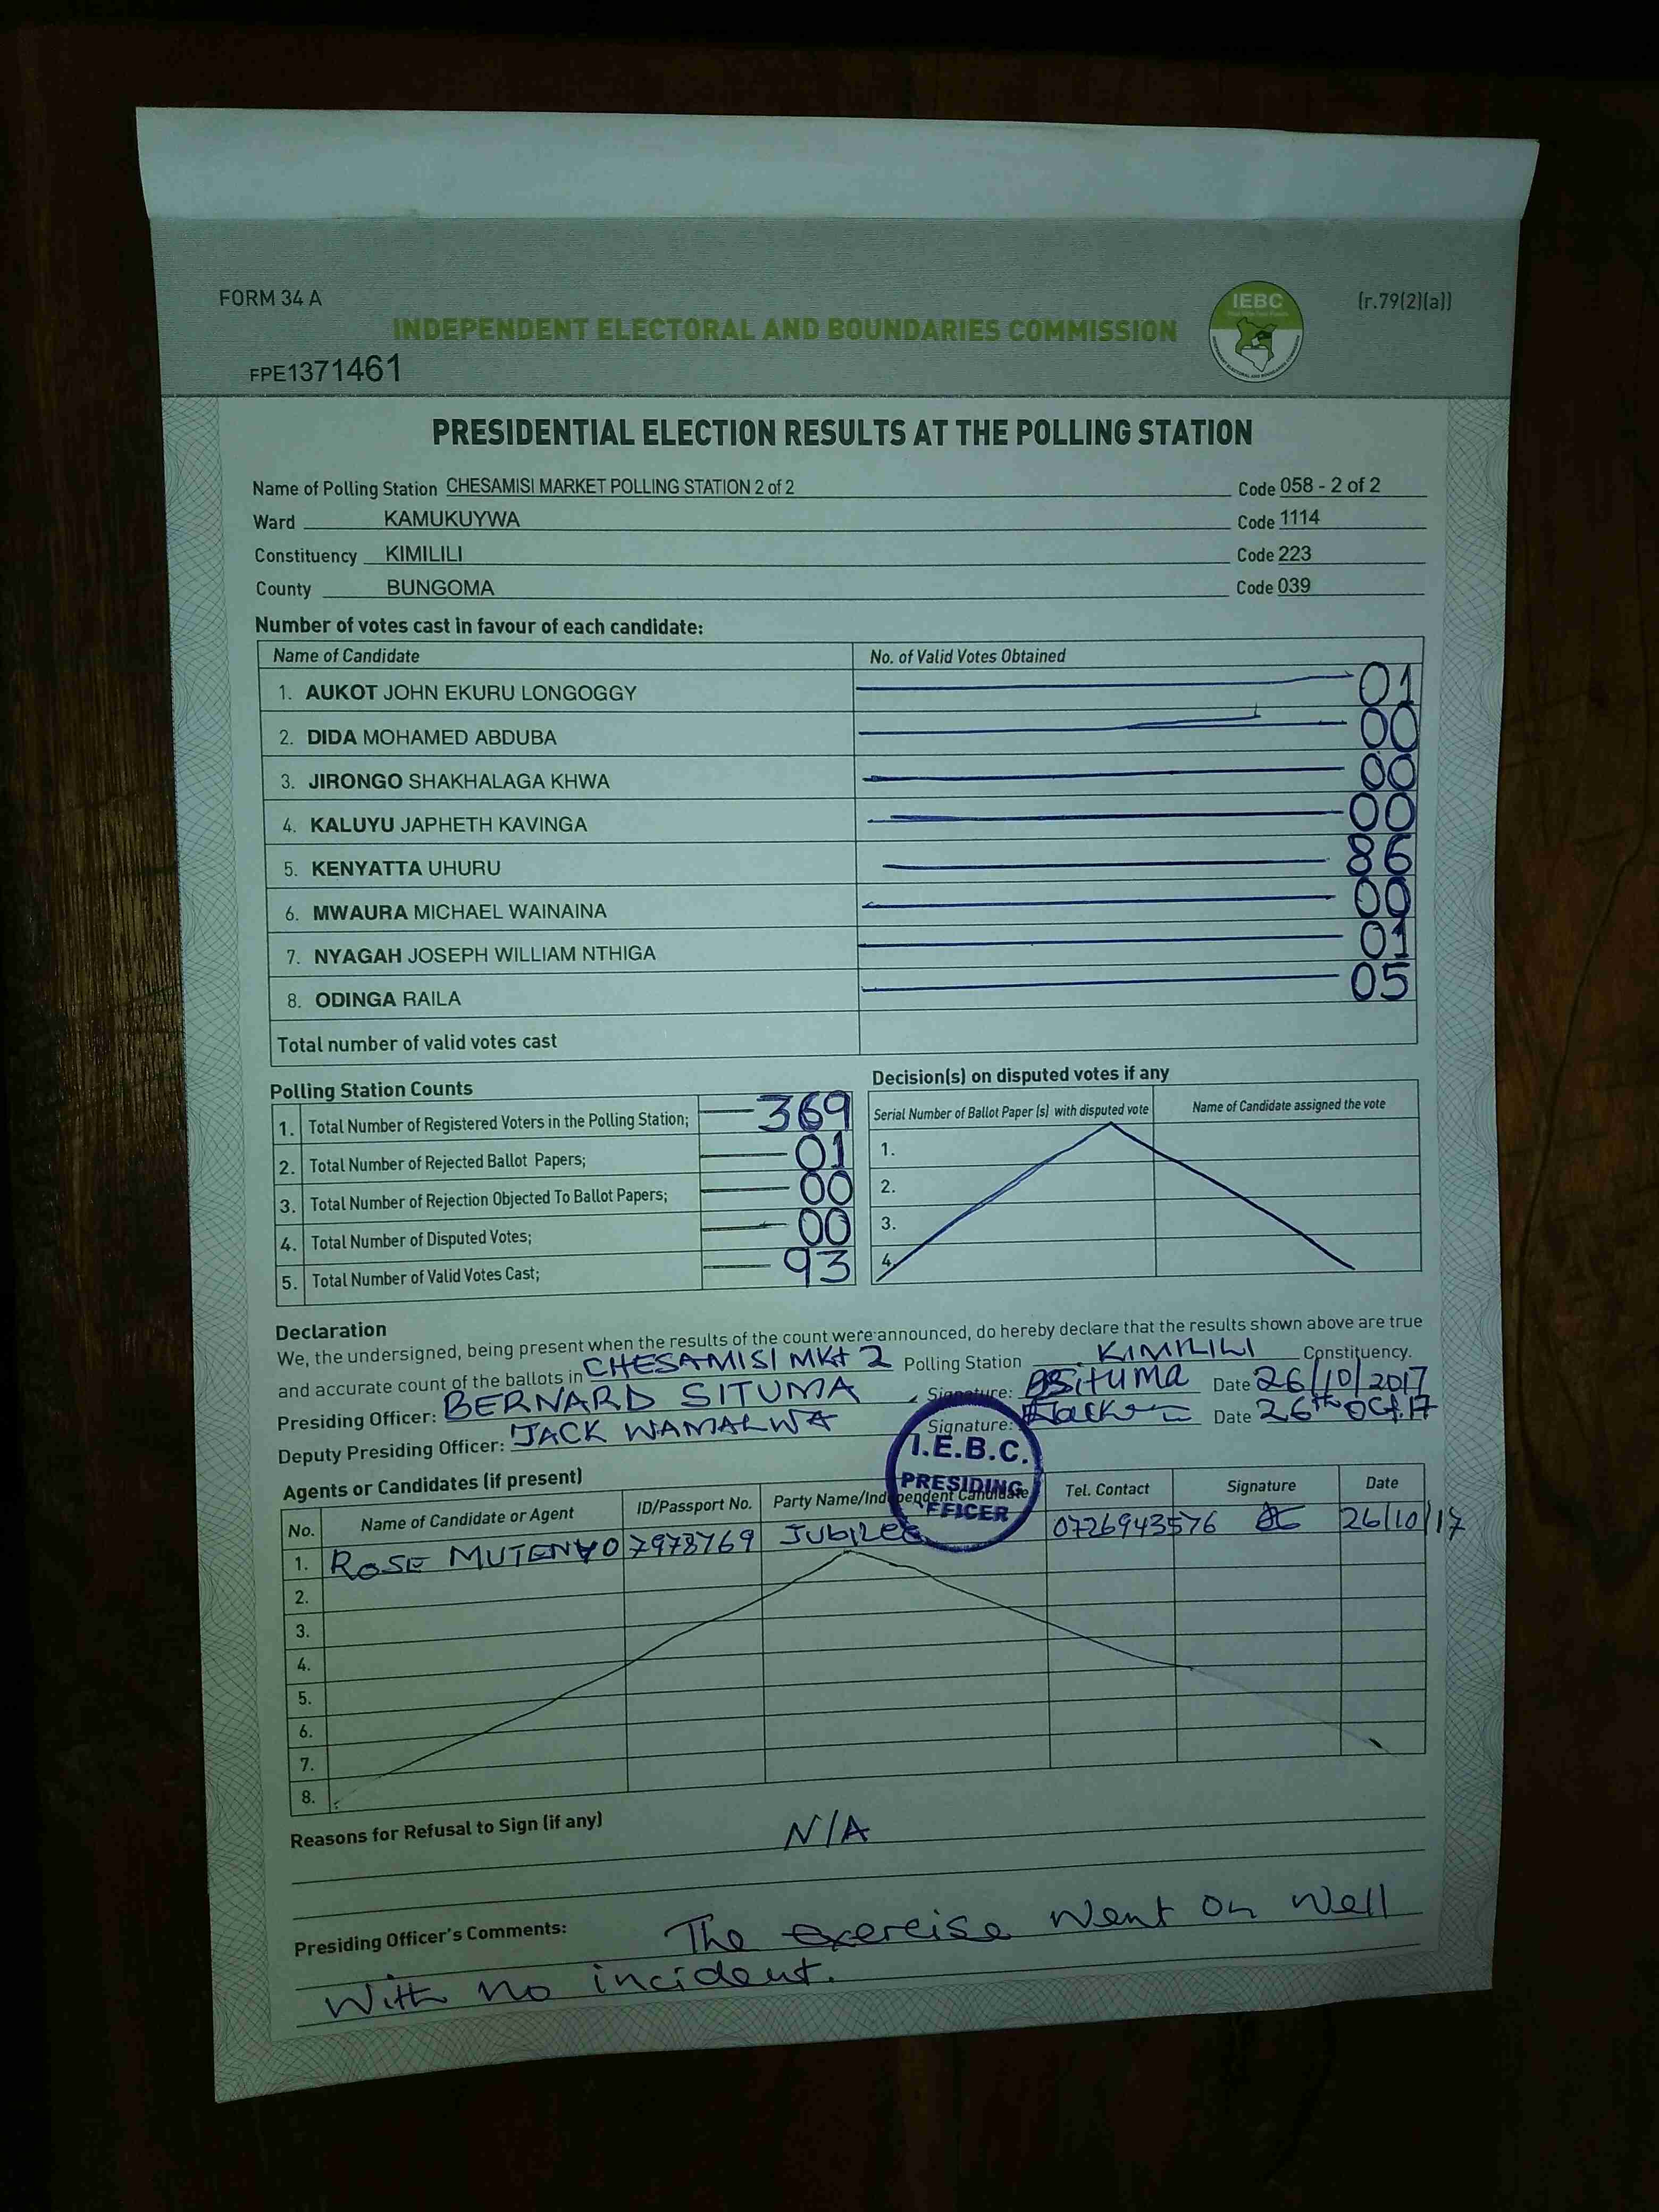 FORM 34 A
IEBC
(r.79(2)(a))
INDEPENDENT ELECTORAL AND BOUNDARIES COMMISSION
FPE1371461
PRESIDENTIAL ELECTION RESULTS AT THE POLLING STATION
Name of Polling Station CHESAMISI MARKET POLLING STATION 2 of 2 Code 058 - 2 of 2
Ward KAMUKUYWA Code 1114
Constituency KIMILILI Code 223
County BUNGOMA Code 039
Number of votes cast in favour of each candidate:
Name of Candidate No. of Valid Votes Obtained
1. AUKOT JOHN EKURU LONGOGGY 01
2. DIDA MOHAMED ABDUBA 00
3. JIRONGO SHAKHALAGA KHWA 00
4. KALUYU JAPHETH KAVINGA 00
5. KENYATTA UHURU 86
6. MWAURA MICHAEL WAINAINA 00
7. NYAGAH JOSEPH WILLIAM NTHIGA 01
8. ODINGA RAILA 05
Total number of valid votes cast
Polling Station Counts
1. Total Number of Registered Voters in the Polling Station; 369
2. Total Number of Rejected Ballot Papers; 01
3. Total Number of Rejection Objected To Ballot Papers; 00
4. Total Number of Disputed Votes; 00
5. Total Number of Valid Votes Cast; 93
Decision(s) on disputed votes if any
Serial Number of Ballot Paper (s) with disputed vote Name of Candidate assigned the vote
1.
2.
3.
4.
Declaration
We, the undersigned, being present when the results of the count were announced, do hereby declare that the results shown above are true
and accurate count of the ballots in CHESAMISI MKt 2 Polling Station KIMILILI Constituency.
Presiding Officer: BERNARD SITUMA Signature: BSituma Date 26/10/2017
Deputy Presiding Officer: JACK WAMALWA Signature: Date 26th Oct.17
I.E.B.C.
PRESIDING
OFFICER
Agents or Candidates (if present)
No. Name of Candidate or Agent ID/Passport No. Party Name/Independent Candidate Tel. Contact Signature Date
1. ROSE MUTENYO 7978769 JUBILEE 0726943576 26/10/17
2.
3.
4.
5.
6.
7.
8.
Reasons for Refusal to Sign (if any) N/A
Presiding Officer's Comments: The exercise went on well
with no incident.